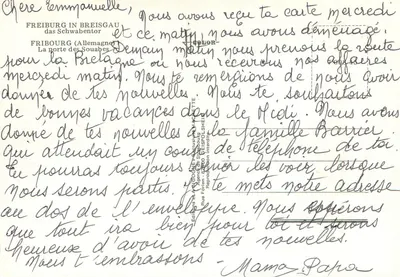 Chère Emmanuelle,
Nous avons reçu ta carte mercredi
FREIBURG IN BREISGAU
das Schwabentor
et ce matin nous avons déménagé.
FRIBOURG (Allemagne)
La porte de Souabe
Demain matin nous prenons la route
pour la Bretagne où nous recevrons nos affaires
mercredi matin. Nous te remercions de nous avoir
donné de tes nouvelles. Nous te souhaitons
de bonnes vacances dans le Midi. Nous avons
donné de tes nouvelles à la famille Barrier
qui attendait un coup de téléphone de toi.
Tu pourras toujours venir les voir, lorsque
nous serons partis. Je te mets notre adresse
au dos de l'enveloppe. Nous espérons
que tout ira bien pour toi et serons
heureux d'avoir de tes nouvelles.
Nous t'embrassons -
Mama-Papa